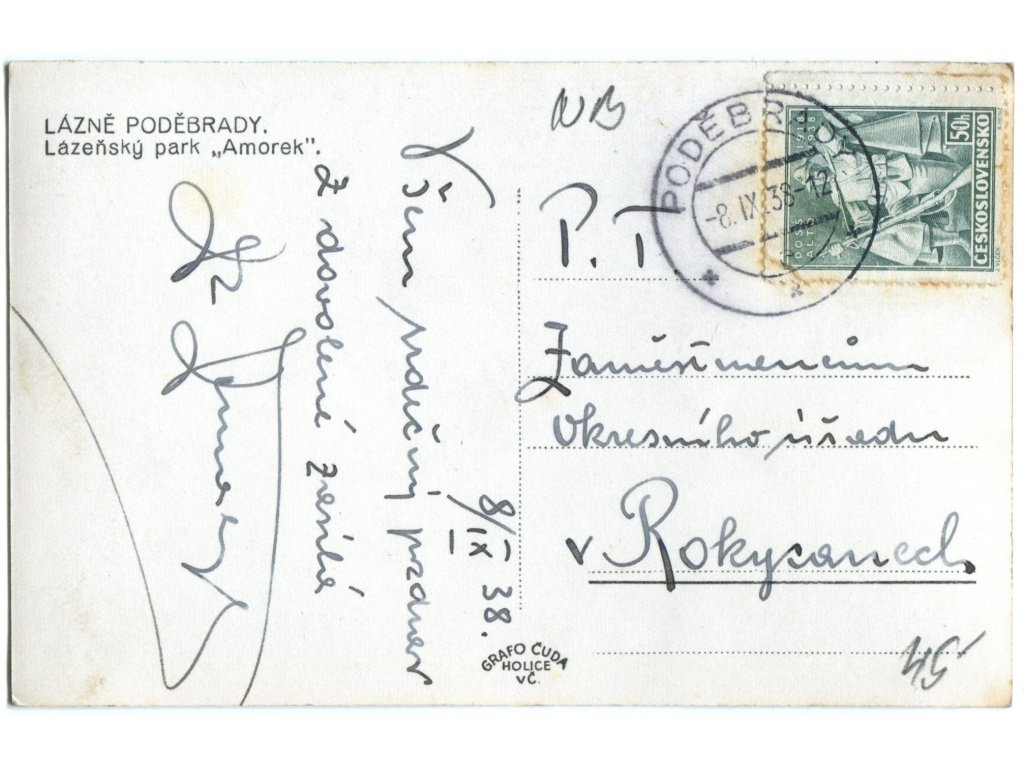 LÁZNĚ PODĚBRADY.
Lázeňský park „Amorek".
Všem srdečný pozdrav
z dovolené zasílá
8/IX 38.
NB
PODĚBRADY
-8.IX.38-12
1918 1938
DOSS ALTO
50h
ČESKOSLOVENSKO
P. T.
Zaměstnancům
Okresního úřadu
v Rokycanech.
45
GRAFO ČUDA
HOLICE
VČ.